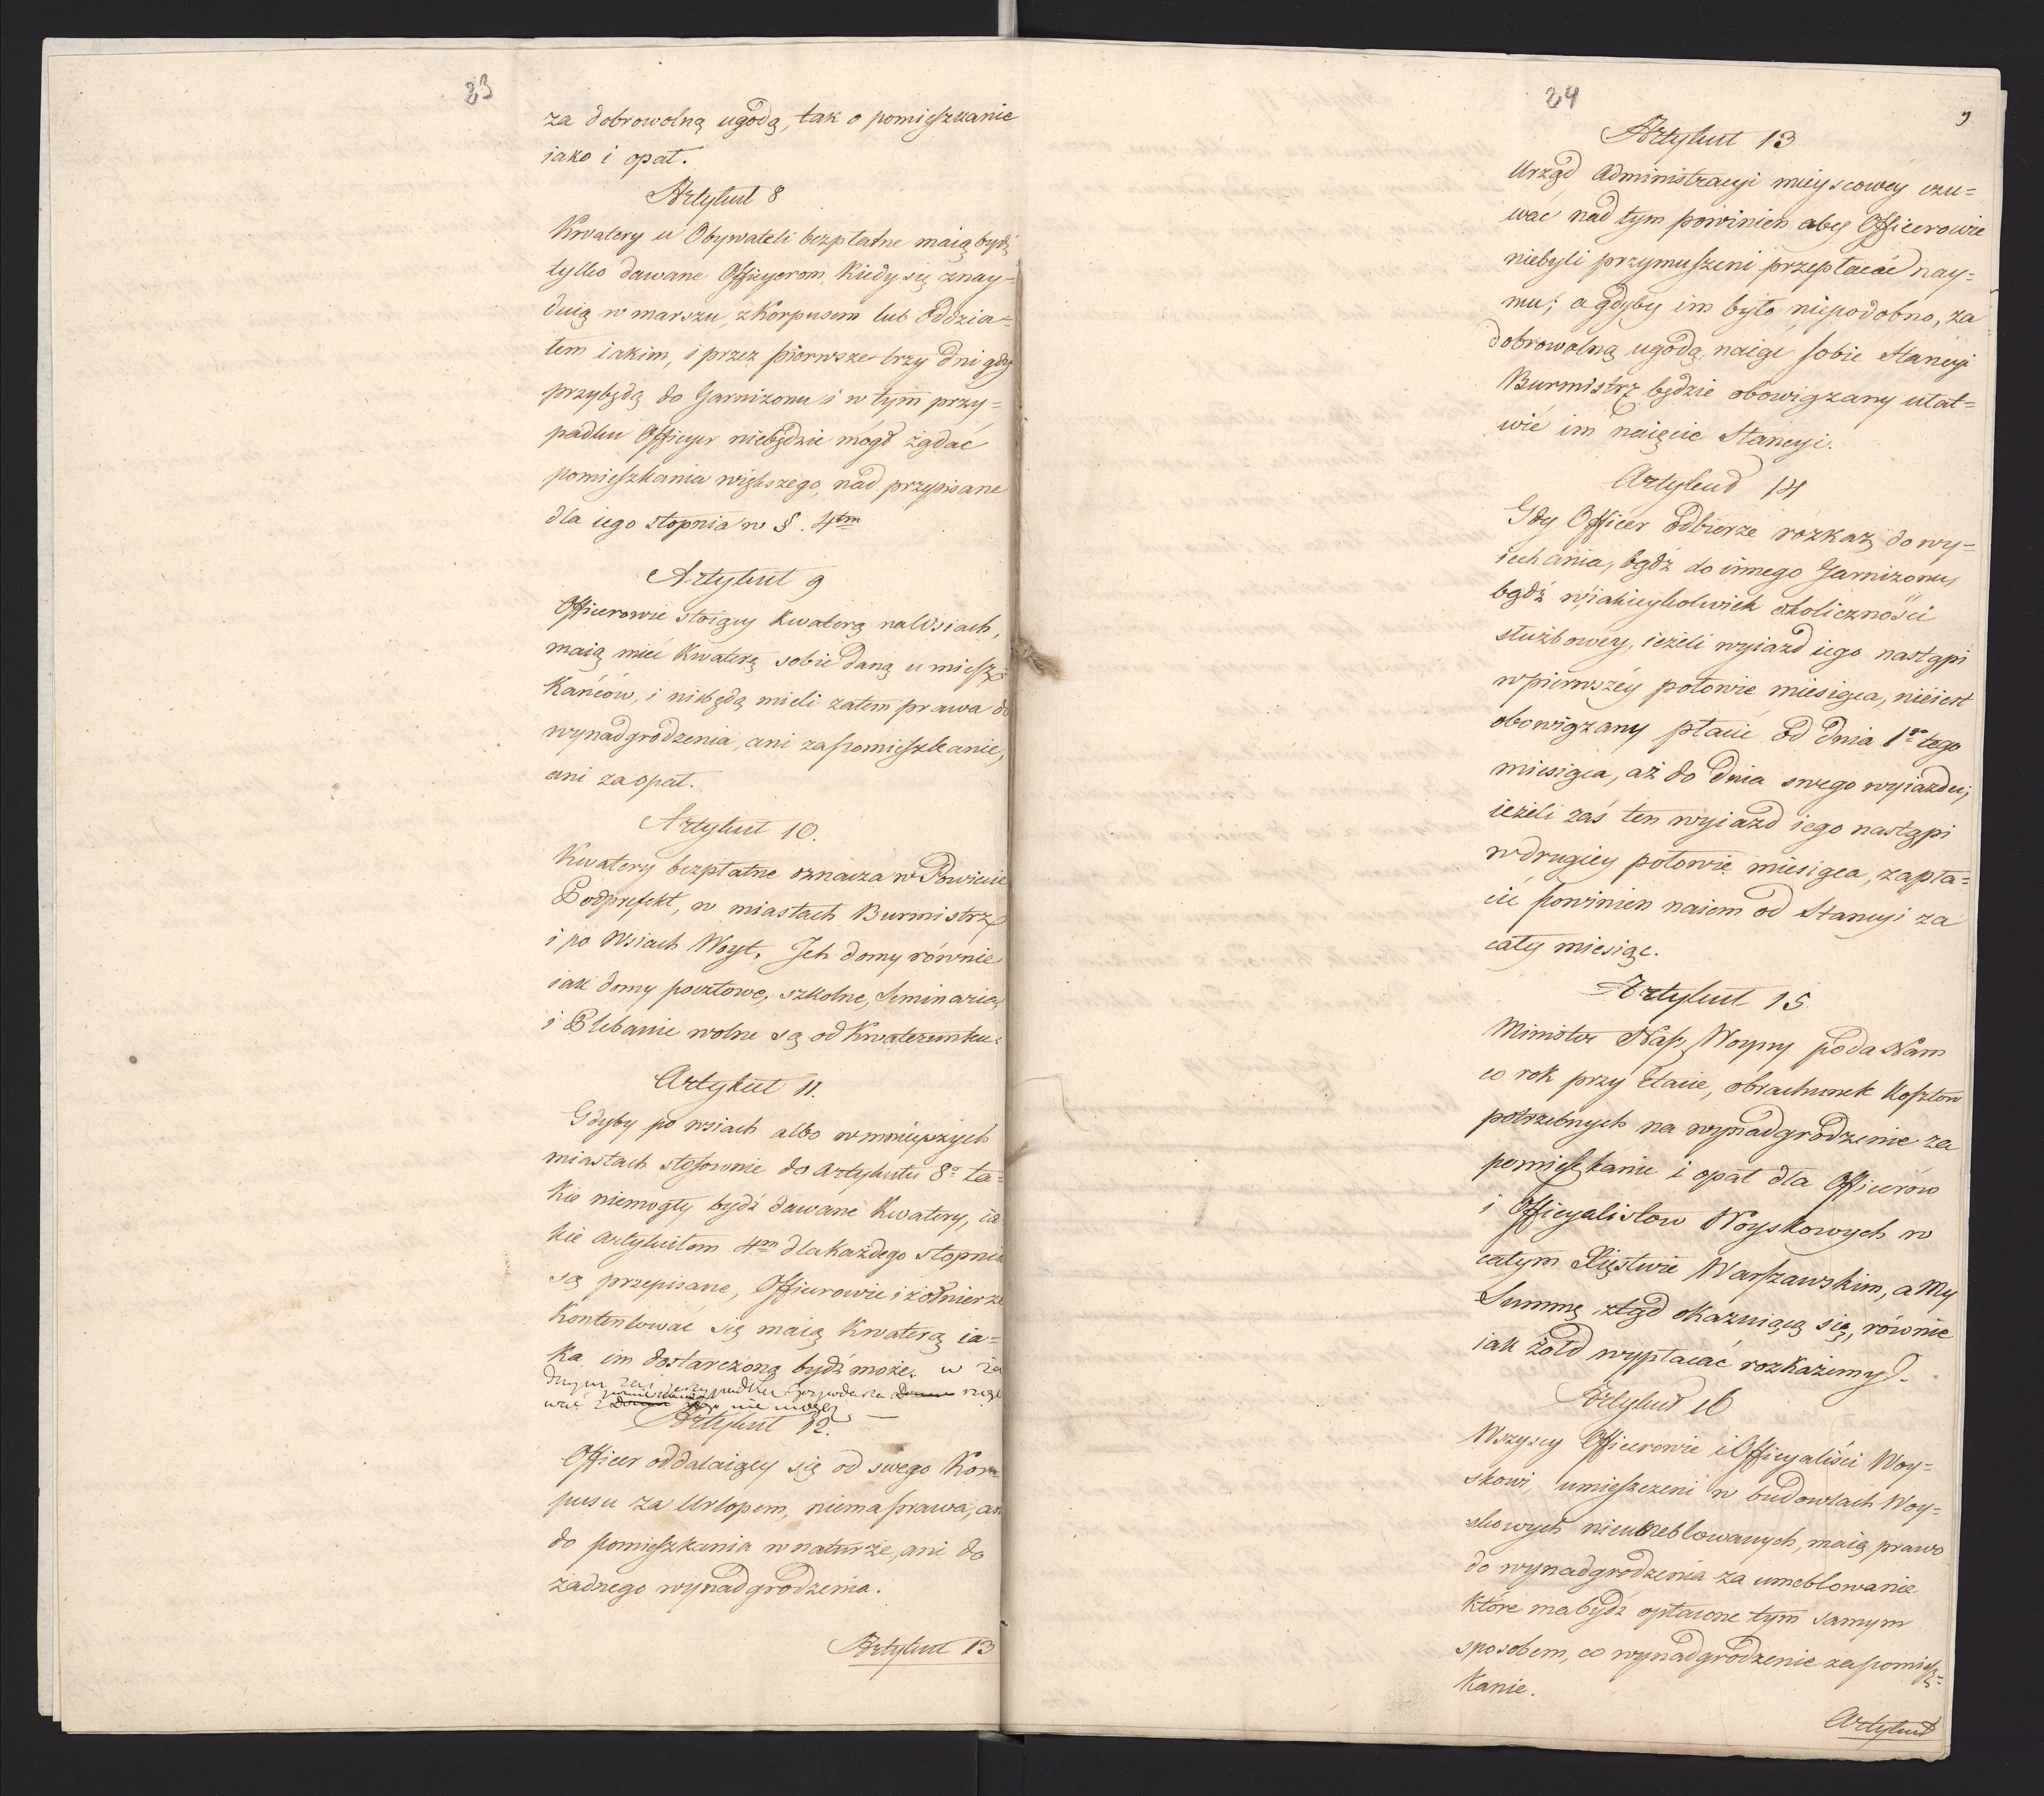 23
za dobrowolną ugodą, tak o pomieszkanie
iako i opał.
Artykuł 8
Kwatery u Obywateli bezpłatne maią bydź
tylko dawane Officyerom, kiedy się znay=
duią w marszu, z korpusem lub oddzia=
łem iakim, i przez pierwsze trzy dni gdy
przybędą do Garnizonu i w tym przy=
padku Officyer niebędzie mógł żądać
pomieszkania większego, nad przypisane
dla iego stopnia w §. 4tm
Artykuł 9
Officerowie stoiący kwaterą na Wsiach,
maią mieć kwaterę sobie daną u miesz=
kańców, i niebędą mieli zatem prawa do
wynadgrodzenia, ani za pomieszkanie,
ani za opał.
Artykuł 10.
Kwatery bezpłatne oznacza w Powiecie
Podprefekt, w miastach Burmistrz
i po Wsiach Woyt. Ich domy równie
iak domy pocztowe, szkolne, Seminaria,
i Plebanie wolne są od Kwaterunku.
Artykuł 11.
Gdyby po wsiach albo w mnieyszych
miastach stosownie do artykułu 8o ta=
kie niemogły bydź dawane Kwatery, ia
kie artykułem 4m dla każdego stopnia
są przepisane, Officerowie i żołnierze
Kontentować się maią kwaterą ia=
ka im dostarczoną bydź może. w ża
dnym zaś przypadku Gospodarza rugo
wać z pomieszkania nie mogą
Artykuł 12.
Officer oddalaiący się od swego Kor=
pusu za Urlopem, niema prawa, ani
do pomieszkania w naturze, ani do
żadnego wynadgrodzenia.
Artykuł 13
24
9
Artykuł 13
Urząd Administracyi mieyscowéy czu=
wać nad tym powinien aby Officerowie
niebyli przymuszeni przepłacać nay=
mu; a gdyby im było niepodobno, za
dobrowolną ugodą, naiąć sobie Stancyi
Burmistrz będzie obowiązany ułat=
wić im naięcie Stancyi.
Artykuł 14
Gdy Officer odbierze rozkaz do wy=
iechania, bądź do innego Garnizonu,
bądź w iakieykolwiek okoliczności
służbowéy, ieżeli wyiazd iego nastąpi
w pierwszéy połowie miesiąca, nieiest
obowiązany płacić od dnia 1go tego
miesiąca, aż do dnia swego wyiazdu;
ieżeli zaś ten wyiazd iego nastąpi
w drugiey połowie miesiąca, zapła=
cić powinien naiem od Stancyi za
cały miesiąc.
Artykuł 15.
Minister Nasz Woyny poda Nam
co rok przy Etacie, obrachunek kosztów
potrzebnych na wynadgrodzenie za
pomieszkanie i opał dla Officerów
i Officyalistów Woyskowych w
całym Xięstwie Warszawskim, a My
Summę ztąd okazuiącą się, równie
iak żołd wypłacać rozkażemy.
Artykuł 16
Wszyscy Officerowie i Officyaliści Woy=
skowi, umieszczeni w budowlach Woy=
skowych nieumeblowanych, maią prawo
do wynadgrodzenia za umeblowanie
które ma bydź opłacone tym samym
sposobem, co wynadgrodzenie za pomiesz=
kanie.
Artykuł